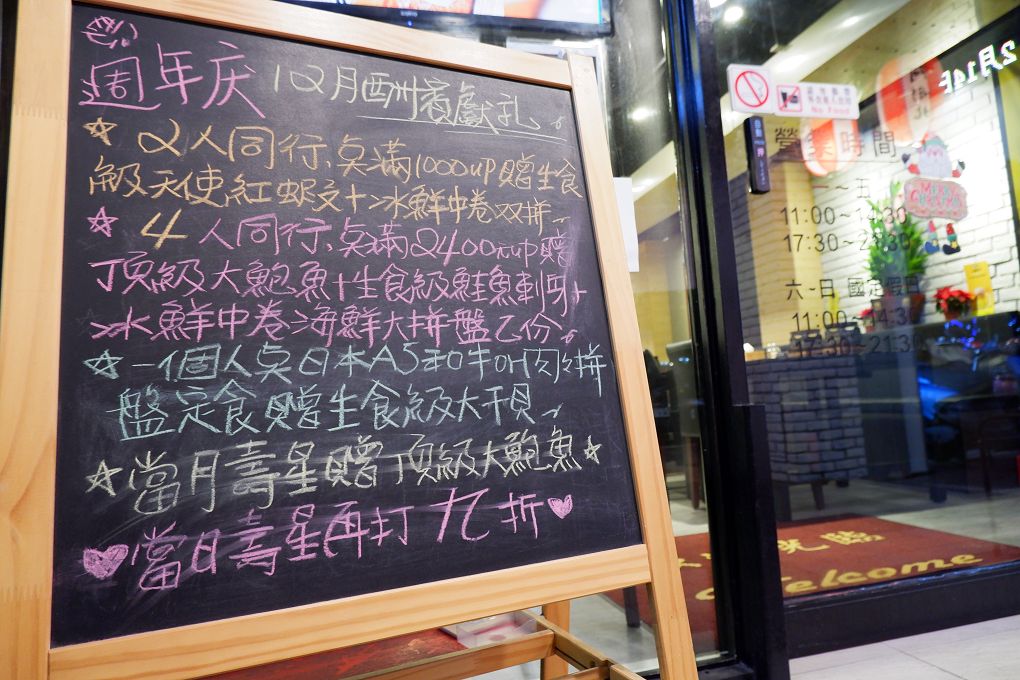 週年庆 12月酬賓獻礼
☆2人同行、点滿1000up贈生食
級天使紅蝦3+冰鮮中卷双拼
☆4人同行、点滿2400元up贈
頂級大鮑魚+生食級鮭魚刺身+
冰鮮中卷海鮮大拼盤乙份
☆一個人点日本A5和牛or肉々拼
盤定食贈生食級大干貝
☆當月壽星贈頂級大鮑魚☆
♡當日壽星再打九折♡
No Food
營業時間
一~五
11:00~14:30
17:30~21:30
六-日 國定假日
11:00~14:30
17:30~21:30
MERRY
2月14
光臨
Welcome